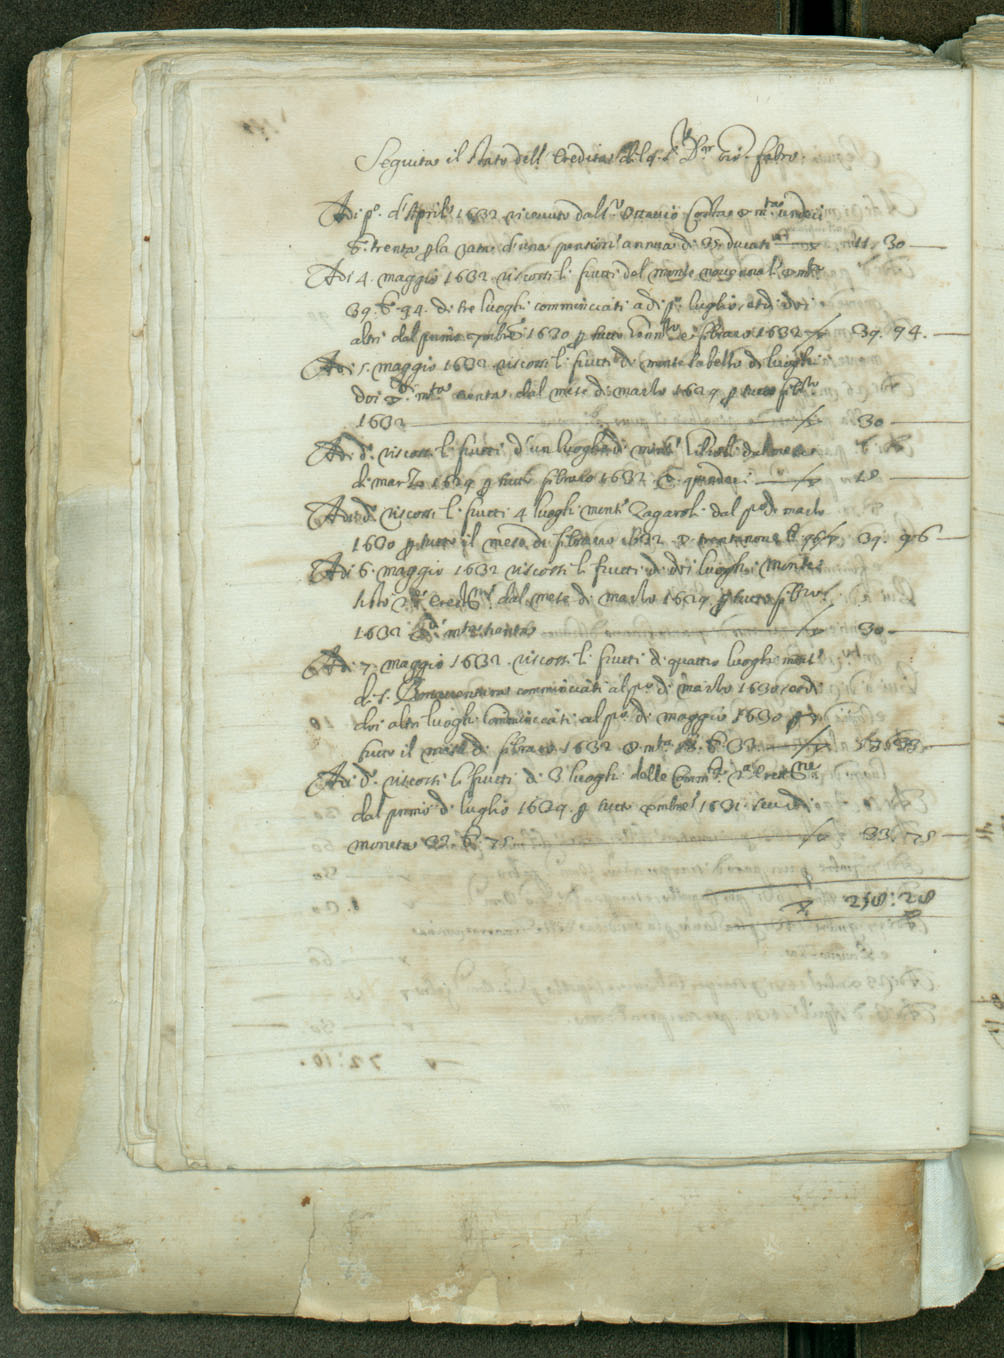 Seguita il stato dell' Eredità del q. S.r D.or Gio. fabro.
Adi p.o d'Aprile 1632 riceuuto dall S.r Ottauio Costa ▽ m.ta undeci
b. trenta p la rata d'una pensione annua di ducati 11. 30
Adi 4. maggio 1632 riscossi li frutti del monte nouennale ▽ m.ta
39. b. 94. di tre luoghi comminciati adi p.o luglio, et di doi
altri dal primo 7mbre 1630 p tutto febraro 1632 39. 94.
Adi 5. maggio 1632 riscossi li frutti di monte de luoghi
doi ▽ di m.ta trenta dal mese di marzo 1629 p tutto feb.ro
1632 30
Adi d.o riscossi li frutti d'un luogho di monte dal mese
di marzo 1629 p tutto febraro 1632 ▽ quindeci 15
Adi d.o riscossi li frutti 4 luoghi monte Zagarolo dal p.o di marzo
1630 p tutto il mese di febraro 1632 ▽ trentanoue b. 96 39. 96
Adi 6. maggio 1632 riscossi li frutti di doi luoghi Monte
dal mese di marzo 1629 p tutto feb.ro
1632 ▽ di m.ta trenta 30
Adi 7. maggio 1632 riscossi li frutti di quattro luoghi monte
di S. Bonauentura comminciati al p.o di marzo 1630, et di
doi altri luoghi comminciati al p.o di maggio 1630 p
tutto il mese di febraro 1632 ▽ m.ta 33.
Adi d.o riscossi li frutti di 3 luoghi delle Comm.tà
dal primo di luglio 1629. p tutto Xmbre 1631 scudi
moneta 33 b. 75 33. 75
▽ 258: 28